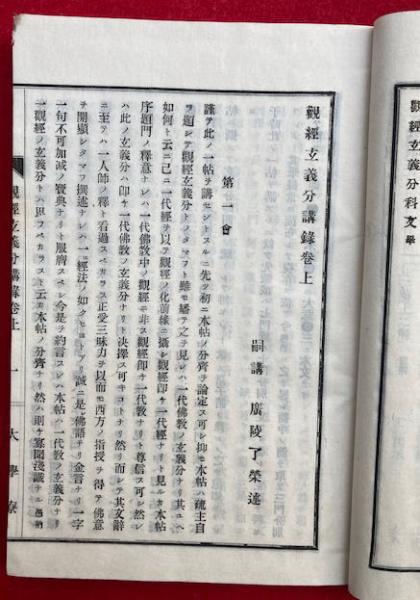 觀經玄義分講錄卷上
嗣講　廣陵了榮述
第一會
謹テ此ノ一帖ヲ講セントスルニ先ツ初ニ本帖ノ分齊ヲ論定ス可シ抑モ本帖ハ疏主自
ラ題シテ觀經玄義分トノタマフト雖モ繙テ之ヲ見レハ一代佛教ノ玄義分ナリ其ユヘ
如何ト云ニ已ニ一代經ヲ以テ觀經ノ化前緣ニ攝シ觀經即ヤ一代經ナリト見ルカ本帖
序題門ノ釋意ナレハ一代佛教中ノ觀經ニ非ス觀經即ヤ一代教ナリト尊信ス可シ然レ
ハ此ノ玄義分ハ即ヤ一代佛教ノ玄義分ナリト決擇ス可キコトナリ然リ而シテ其文辭
ニ至テハ一人師ノ釋ト看過スベカラス正受三昧力ヲ以而モ西方ノ指授ヲ得テ佛意
ヲ開顯シタマフ撰述ナレハ一ニ經法ノ如クセヨトアリ誠ニ是レ佛語ナリ金言ナリ一字
一句不可加減ノ寶典ナリト服膺スベシ今是ヲ約言スレハ本帖ハ一代玄義分ナリ
觀經ノ玄義分トハ思フベカラスト云カ本帖ノ分齊ナリ然ハ則ヤ寡聞淺識ナル愚衲
觀經玄義分講錄卷上
一
大學寮
觀經玄義分科文